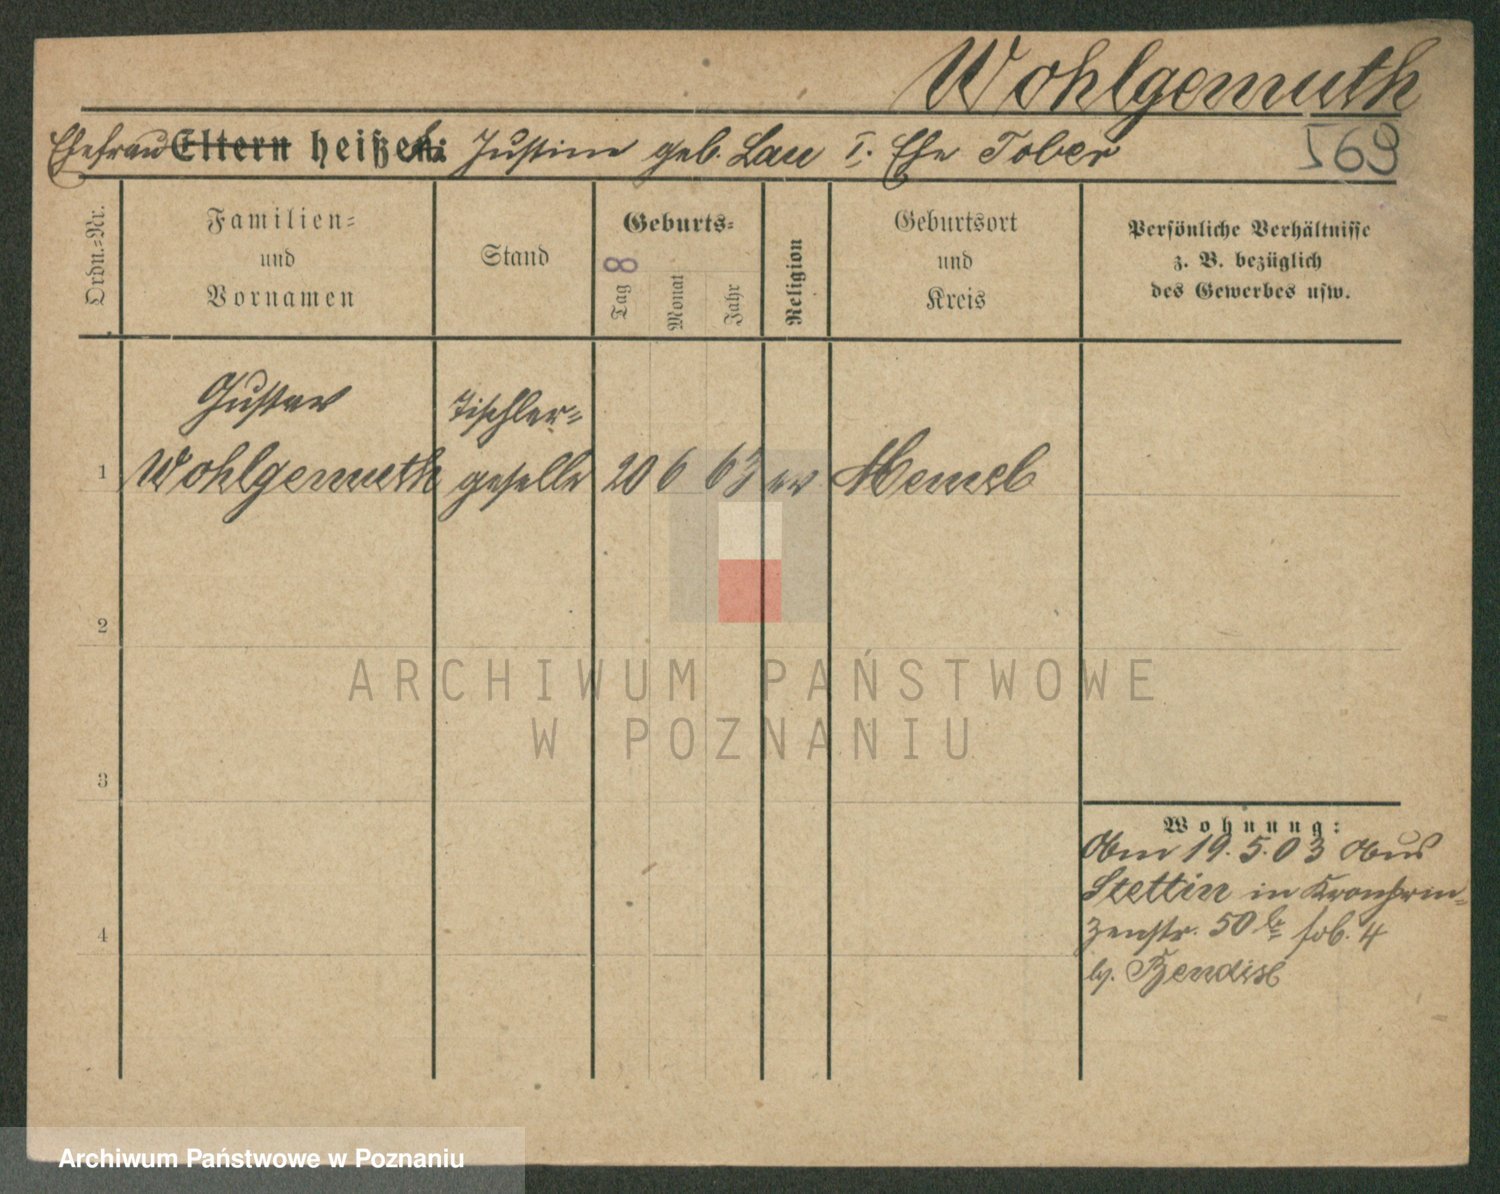 Wohlgemuth
Ehefrau Eltern heißt: Justine geb. Lau I. Ehe Tober
569
Ordn.=Nr.
Familien=
und
Vornamen
Stand
Geburts=
8
Tag
Monat
Jahr
Religion
Geburtsort
und
Kreis
Persönliche Verhältnisse
z. B. bezüglich
des Gewerbes usw.
Gustav
Tischler=
1 Wohlgemuth geselle 20 6 63 ev Memel
2
3
4
Wohnung:
Am 19.5.03 aus
Stettin in Kronprin=
zenstr. 50 4
b.
ARCHIWUM PAŃSTWOWE
W POZNANIU
Archiwum Państwowe w Poznaniu